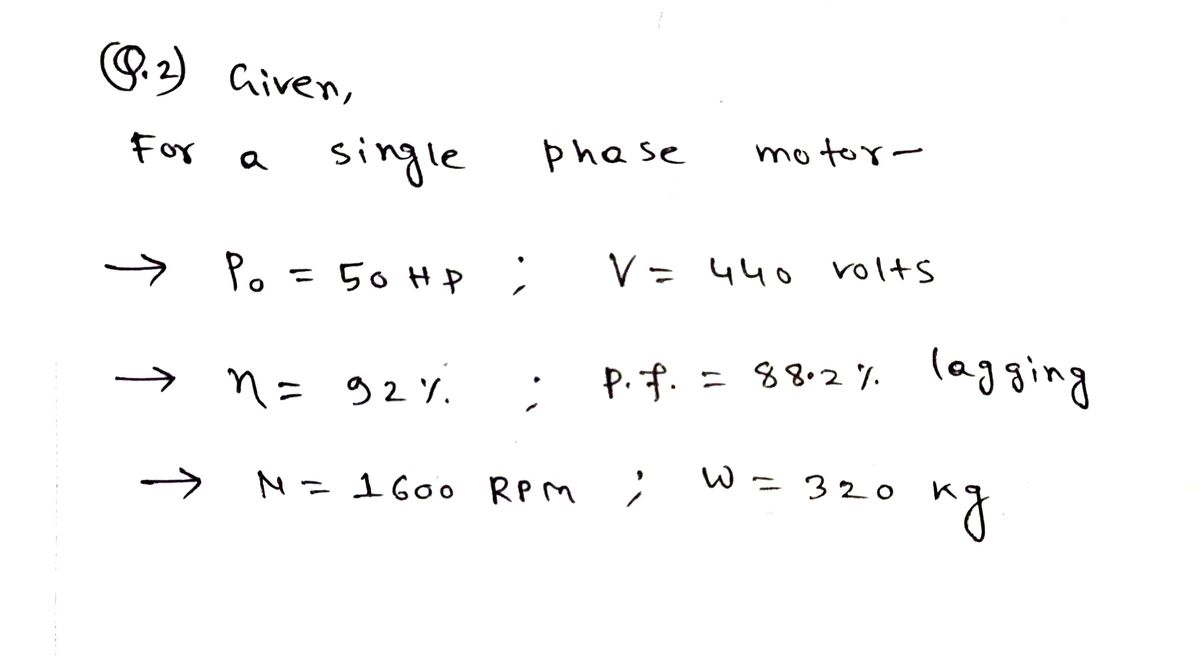 (Q.2) Given,
For a single phase motor-
→ P₀ = 50 HP ; V = 440 volts
→ η = 92 % ; P.f. = 88.2 % lagging
→ N = 1600 RPM ; W = 320 kg